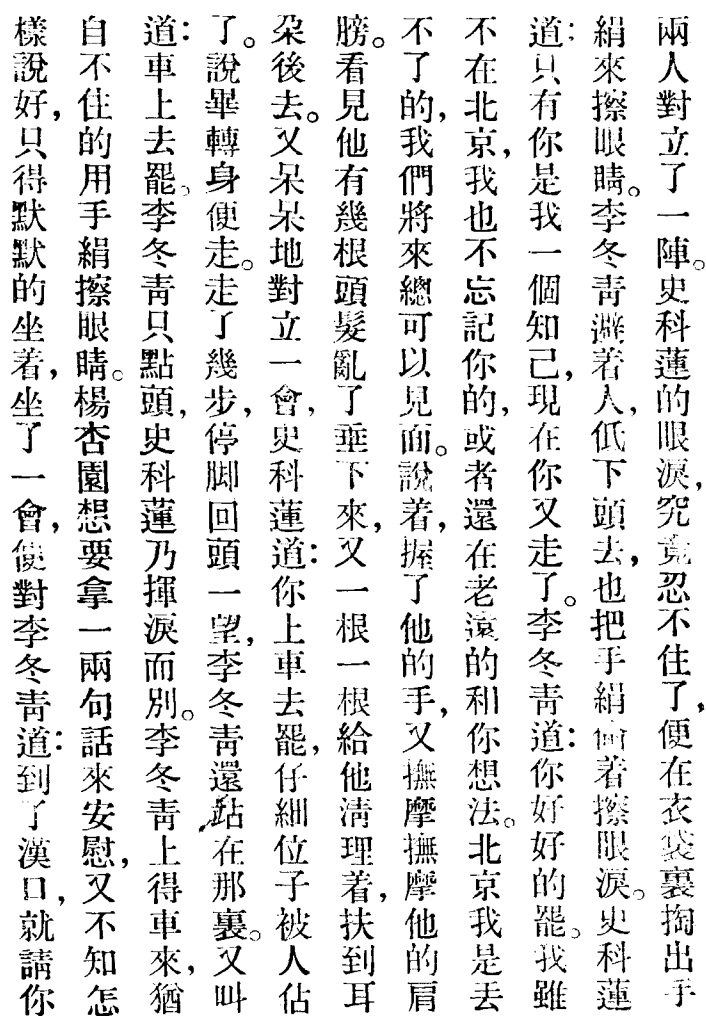 兩人對立了一陣。史科蓮的眼淚，究竟忍不住了，便在衣袋裏掏出手
絹來擦眼睛。李冬青避着人，低下頭去，也把手絹偷着擦眼淚。史科蓮
道：只有你是我一個知己，現在你又走了。李冬青道：你好好的罷。我雖
不在北京，我也不忘記你的，或者還在老遠的和你想法。北京我是丟
不了的，我們將來總可以見面。說着，握了他的手，又撫摩撫摩他的肩
膀。看見他有幾根頭髮亂了垂下來，又一根一根給他清理着，扶到耳
朶後去。又呆呆地對立一會，史科蓮道：你上車去罷，仔細位子被人佔
了。說畢轉身便走。走了幾步，停脚回頭一望，李冬青還站在那裏。又叫
道：車上去罷。李冬青只點頭，史科蓮乃揮淚而別。李冬青上得車來，猶
自不住的用手絹擦眼睛。楊杏園想要拿一兩句話來安慰，又不知怎
樣說好，只得默默的坐着，坐了一會，便對李冬青道：到了漢口，就請你